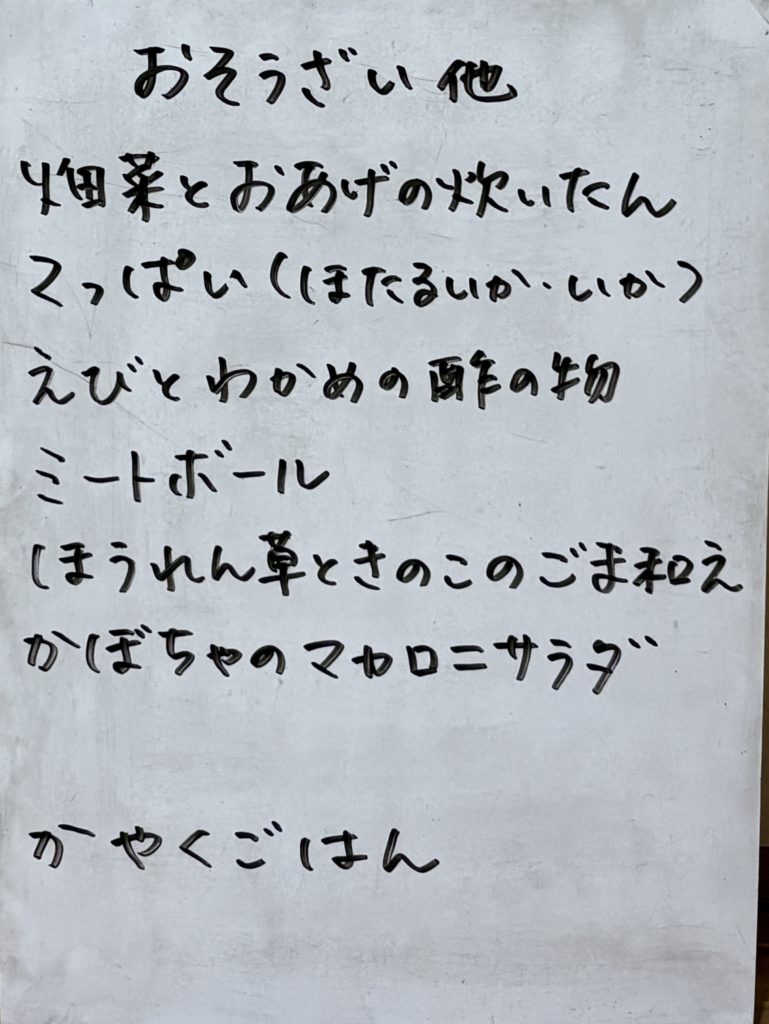 おそうざい 他
畑菜とおあげの炊いたん
てっぱい(ほたるいか・いか)
えびとわかめの酢の物
ミートボール
ほうれん草ときのこのごま和え
かぼちゃのマカロニサラダ
かやくごはん